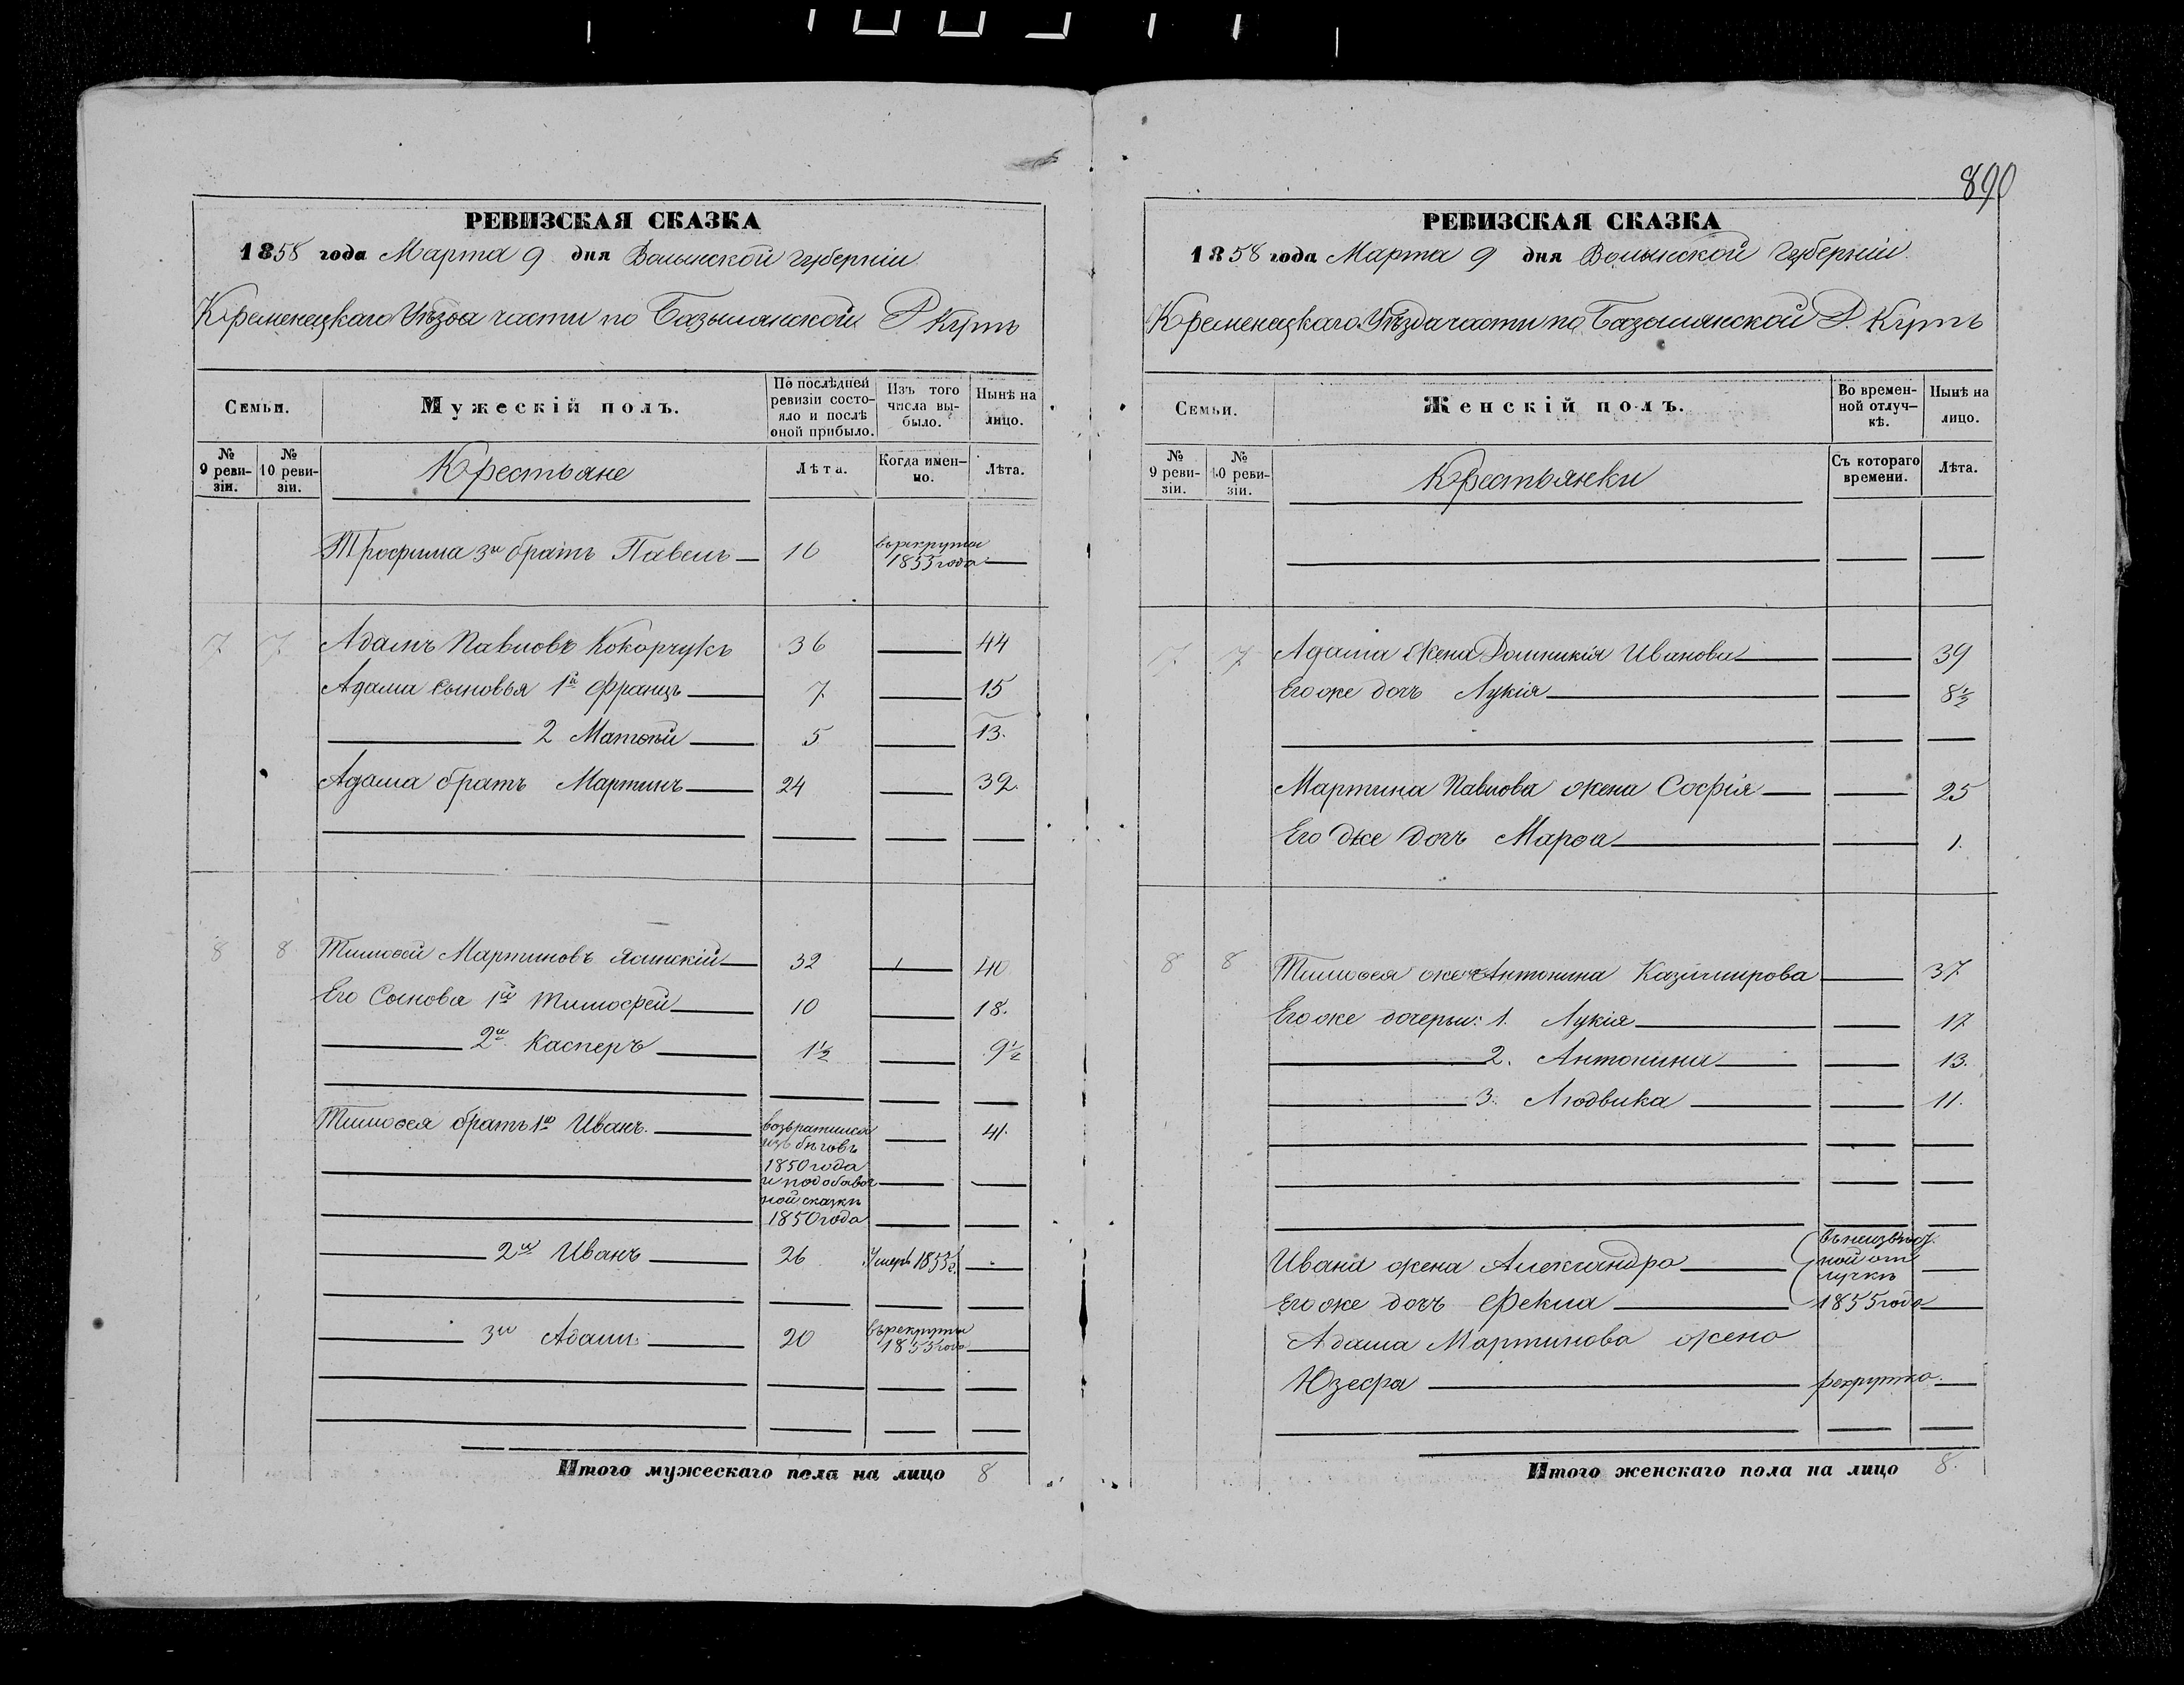 890
РЕВИЗСКАЯ СКАЗКА
1858 года Марта 9 дня Волынской губерніи
Кременецкаго Уѣзда части по Базылянской Р Купѣ
Семьи.
Мужескій полъ.
По послѣдней ревизіи состояло и послѣ оной прибыло.
Изъ того числа выбыло.
Нынѣ на лицо.
№ 9 ревизіи.
№ 10 ревизіи.
Крестьяне
Лѣта.
Когда именно.
Лѣта.
Трофима 3й братъ Павелъ 16 въ рекруты 1855 года
7 7 Адамъ Павловъ Кокорчукъ 36 44
Адама сыновья 1й Францъ 7 15
2 Матѳѣй 5 13.
Адама братъ Мартинъ 24 32.
8 8 Тимоѳей Мартиновъ Ясинскій 32 40
Его Сынова 1й Тимофей 10 18.
2й Касперъ 1½ 9½
Тимоѳея братъ 1й Иванъ. возвратился изъ бѣговъ 1850 года и по добавочной сказкѣ 1850 года 41.
2й Иванъ 26 Умеръ 1855 г.
3й Адамъ 20 въ рекруты 1855 года
Итого мужескаго пола на лицо 8
РЕВИЗСКАЯ СКАЗКА
1858 года Марта 9 дня Волынской Губерніи.
Кременецкаго Уѣзда части по Базылянской Р. Купѣ
Семьи.
Женскій полъ.
Во временной отлучкѣ.
Нынѣ на лицо.
№ 9 ревизіи.
№ 10 ревизіи.
Крестьянки
Съ котораго времени.
Лѣта.
7 7 Адама жена Домникія Иванова 39
Его же дочь Лукія 8½
Мартина Павлова жена Софія 25
Его же дочь Марѳа 1.
8 8 Тимоѳея жена Антонина Казимирова 37
Его же дочерьи: 1. Лукія 17
2. Антонина 13.
3. Людвика 11.
Ивана жена Александра
Его же дочь Фекла
въ неизвѣстной отлучкѣ 1855 года
Адама Мартинова жена
Юзефа рекрутка.
Итого женскаго пола на лицо 8.